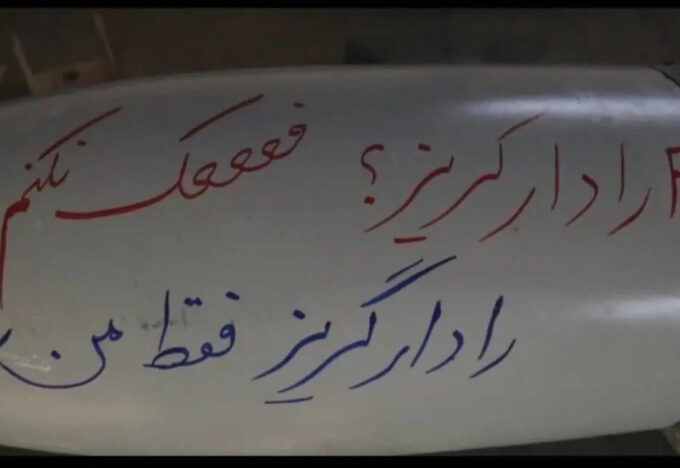 رادارگریز؟ فففففک نکنم
رادارگریز فقط من